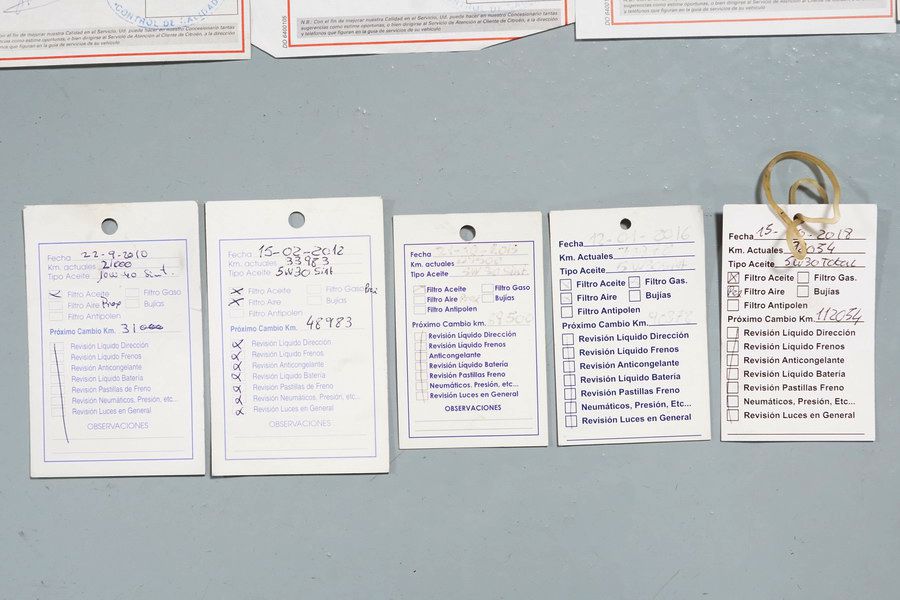 CONTROL DE CALIDAD
on el fin de mejorar nuestra Calidad en el Servicio, Ud. puede hacer en nuestro Concesionario tantas
sugerencias como estime oportunas, o bien dirigirse al Servicio de Atención al Cliente de Citroën, a la dirección
que figuran en la guía de servicios de su vehículo
DD 6400105
N.B.: Con el fin de mejorar nuestra Calidad en el Servicio, Ud. puede hacer en nuestro Concesionario tantas
sugerencias como estime oportunas, o bien dirigirse al Servicio de Atención al Cliente de Citroën, a la dirección
y teléfonos que figuran en la guía de servicios de su vehículo
Fecha 22-9-2010
Km. actuales 21000
Tipo Aceite 10W40 Sint.
Filtro Aceite Filtro Gaso
Filtro Aire Prox Bujías
Filtro Antipolen
Próximo Cambio Km. 31000
Revisión Líquido Dirección
Revisión Líquido Frenos
Revisión Anticongelante
Revisión Líquido Batería
Revisión Pastillas de Freno
Revisión Neumáticos, Presión, etc...
Revisión Luces en General
OBSERVACIONES
Fecha 15-02-2012
Km. actuales 33983
Tipo Aceite 5W30 Sint
Filtro Aceite Filtro Gaso
Filtro Aire Bujías
Filtro Antipolen
Próximo Cambio Km. 48983
Revisión Líquido Dirección
Revisión Líquido Frenos
Revisión Anticongelante
Revisión Líquido Batería
Revisión Pastillas de Freno
Revisión Neumáticos, Presión, etc...
Revisión Luces en General
OBSERVACIONES
Fecha
Km. actuales
Tipo Aceite 5W30 Sint.
Filtro Aceite Filtro Gas.
Filtro Aire Bujías
Filtro Antipolen
Próximo Cambio Km.
Revisión Líquido Dirección
Revisión Líquido Frenos
Anticongelante
Revisión Líquido Batería
Revisión Pastillas Freno
Neumáticos, Presión, etc...
Revisión Luces en General
OBSERVACIONES
Fecha
Km. Actuales
Tipo Aceite
Filtro Aceite Filtro Gas.
Filtro Aire Bujías
Filtro Antipolen
Próximo Cambio Km.
Revisión Líquido Dirección
Revisión Líquido Frenos
Revisión Anticongelante
Revisión Líquido Batería
Revisión Pastillas Freno
Neumáticos, Presión, Etc...
Revisión Luces en General
Fecha 15- -2018
Km. Actuales
Tipo Aceite 5W30 Total
Filtro Aceite Filtro Gas.
Filtro Aire Bujías
Filtro Antipolen
Próximo Cambio Km. 112054
Revisión Líquido Dirección
Revisión Líquido Frenos
Revisión Anticongelante
Revisión Líquido Batería
Revisión Pastillas Freno
Neumáticos, Presión, Etc...
Revisión Luces en General